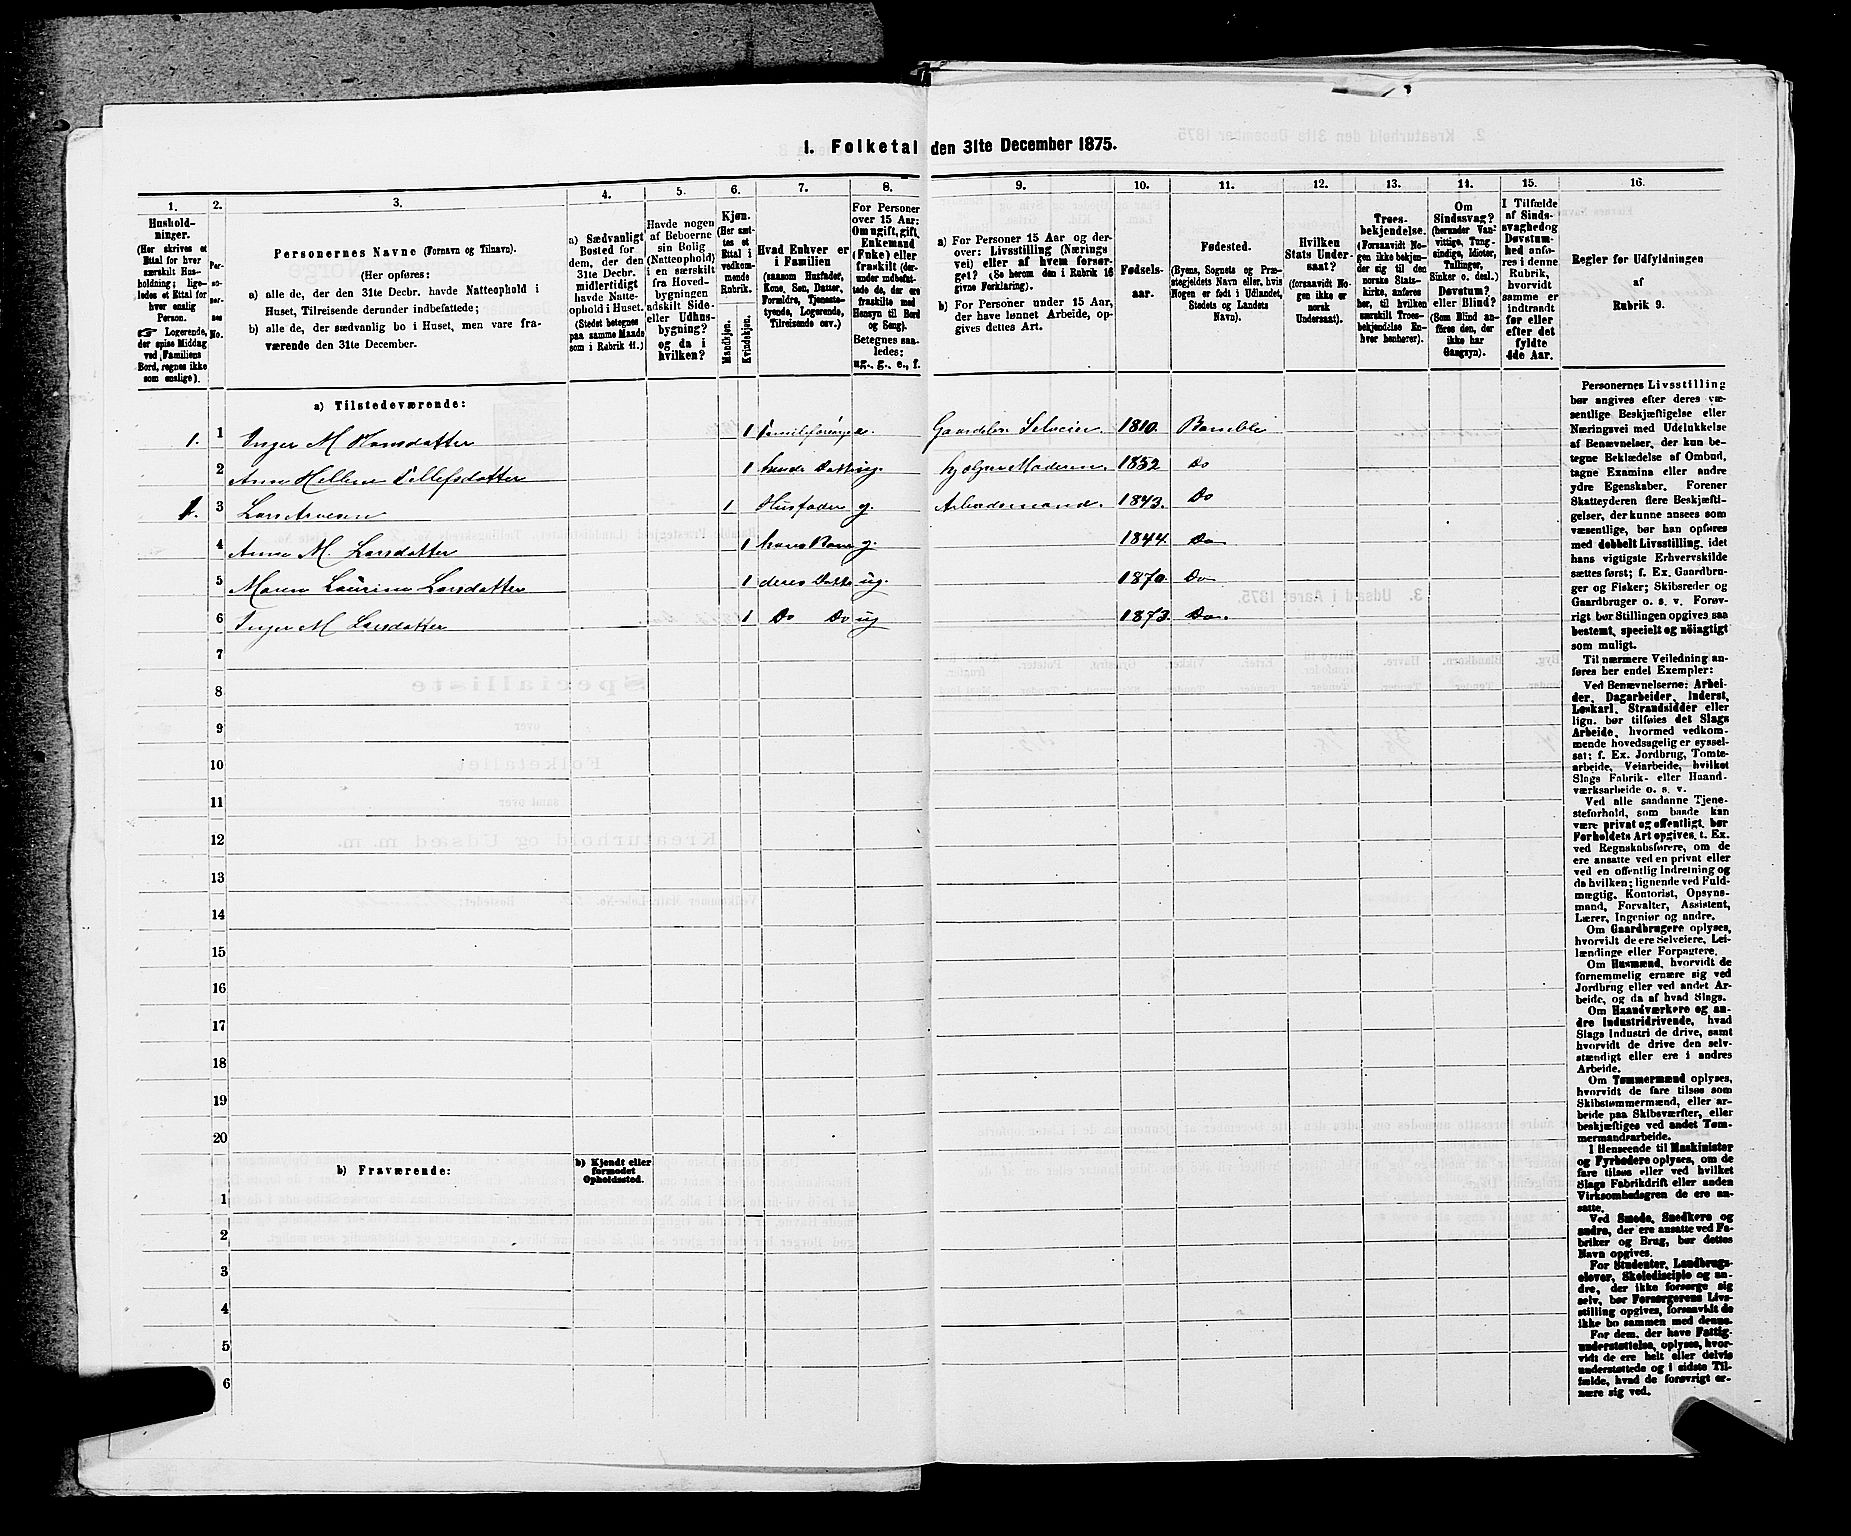 1. Folketal den 31te December 1875.
1.
Hushold-
ninger.
(Her skrives et
Ettal for hver
særskilt Hus-
holdning; lige-
ledes et Ettal for
hver enslig
Person.
☞ Logerende,
der spise Middag
ved Familiens
Bord, regnes ikke
som enslige).
2.
Per-
so-
ner-
nes
No.
3.
Personernes Navne (Fornavn og Tilnavn).
(Her opføres:
a) alle de, der den 31te Decbr. havde Natteophold i
Huset, Tilreisende derunder indbefattede;
b) alle de, der sædvanlig bo i Huset, men vare fra-
værende den 31te December.
4.
a) Sædvanligt
Bosted for
dem, der den
31te Decbr.
midlertidigt
havde Natte-
ophold i Huset.
(Stedet betegnes
paa samme Maade
som i Rubrik 11.)
5.
Havde nogen
af Beboerne
sin Bolig
(Natteophold)
i en særskilt
fra Hoved-
bygningen
adskilt Side-
eller Udhus-
bygning?
og da i
hvilken?
6.
Kjøn.
(Her sæt-
tes et
Ettal i
vedkom-
mende
Rubrik.
Mandkjøn.
Kvindekjøn.
7.
Hvad Enhver er
i Familien
(saasom Husfader,
Kone, Søn, Datter,
Forældre, Tjeneste-
tyende, Logerende,
Tilreisende osv.)
8.
For Personer
over 15 Aar:
Om ugift, gift,
Enkemand
(Enke) eller
fraskilt (der-
under indbefat-
tede de, der ere
fraskilte med
Hensyn til Bord
og Seng).
Betegnes saa-
ledes:
ug., g., e., f.
9.
a) For Personer 15 Aar og der-
over: Livsstilling (Nærings-
vei) eller af hvem forsør-
get? (Se herom den i Rubrik 16
givne Forklaring).
b) For Personer under 15 Aar,
der have lønnet Arbeide, op-
gives dettes Art.
10.
Fødsels-
aar.
11.
Fødested.
(Byens, Sognets og Præ-
stegjeldets Navn eller, hvis
Nogen er født i Udlandet,
Stedets og Landets
Navn).
12.
Hvilken
Stats Under-
saat?
(forsaavidt No-
gen ikke er
norsk
Undersaat).
13.
Troes-
bekjendelse.
(Forsaavidt No-
gen ikke bekjen-
der sig til den
norske Stats-
kirke, anføres
her, til hvilken
særskilt Troes-
bekjendelse En-
hver henhører).
14.
Om
Sindssvag?
(herunder Van-
vittige, Tung-
sindige, Idioter,
Tullinger,
Sinker o. desl.)
Døvstum?
eller Blind?
(Som Blind an-
føres den, der
ikke har
Gangsyn).
15.
I Tilfælde
af Sinds-
svaghed og
Døvstum-
hed anfø-
res i denne
Rubrik,
hvorvidt
samme er
indtraadt
før eller
efter det
fyldte
4de Aar.
16.
Regler for Udfyldningen
af
Rubrik 9.
a) Tilstedeværende:
1. 1 Inger M Hansdatter 1 Familieforsørger e. Gaardeier Selveier. 1810. Bamble
2 Anne Hellene Tellefsdatter 1 hendes Datter ug. hjælper Moderen. 1852 Do
1. 3 Lars Arvesen 1 Husfader g. Arbeidsmand. 1843. Do
4 Anne M. Larsdatter 1 hans Kone g. 1844. Do
5 Maren Laurine Larsdatter 1 deres Datter ug. 1870. Do
6 Inger M Larsdatter 1 Do Do ug 1873. Do.
7
8
9
10
11
12
13
14
15
16
17
18
19
20
b) Fraværende:
b) Kjendt eller
formodet
Opholdssted.
1
2
3
4
5
6
Personernes Livsstilling
bør angives efter deres væ-
sentlige Beskjæftigelse eller
Næringsvei med Udelukkelse
af Benævnelser, der kun be-
tegne Beklædelse af Ombud,
tagne Examina eller andre
ydre Egenskaber. Forener
Skatteyderen flere Beskjæfti-
gelser, der kunne ansees som
væsentlige, bør han opføres
med dobbelt Livsstilling, idet
hans vigtigste Erhvervskilde
sættes først; f. Ex. Gaardbru-
ger og Fisker; Skibsreder og
Gaardbruger o. s. v. Forøv-
rigt bør Stillingen opgives saa
bestemt, specielt og nøiagtigt
som muligt.
Til nærmere Veiledning an-
føres her endel Exempler:
Ved Benævnelserne: Arbei-
der, Dagarbeider, Inderst,
Løskarl, Strandsidder eller
lign. bør tilføies det Slags
Arbeide, hvormed vedkom-
mende hovedsagelig er syssel-
sat; f. Ex. Jordbrug, Tomte-
arbeide, Veiarbeide, hvilket
Slags Fabrik- eller Haand-
værksarbeide o. s. v.
Ved alle saadanne Tjene-
steforhold, som baade kan
være privat og offentligt, bør
Forholdets Art opgives, t. Ex.
ved Regnskabsførere, om de
ere ansatte ved en privat eller
ved en offentlig Indretning og
da hvilken; lignende ved Fuld-
mægtig, Kontorist, Opsyns-
mand, Forvalter, Assistent,
Lærer, Ingeniør og andre.
Om Gaardbrugere oplyses,
hvorvidt de ere Selveiere, Lei-
lændinge eller Forpagtere.
Om Husmænd, hvorvidt de
fornemmelig ernære sig ved
Jordbrug eller ved andet Ar-
beide, og da af hvad Slags.
Om Haandværkere og an-
dre Industridrivende, hvad
Slags Industri de drive, samt
hvorvidt de drive den selv-
stændigt eller ere i andres
Arbeide.
Om Tømmermænd oplyses,
hvorvidt de fare tilsøs som
Skibstømmermænd, eller ar-
beide paa Skibsværfter, eller
beskjæftiges ved andet Tøm-
mermandarbeide.
I Henseende til Maskinister
og Fyrbødere oplyses, om de
fare tilsøs eller ved hvilket
Slags Fabrikdrift eller anden
Virksomhedsgren de ere an-
satte.
Ved Smede, Snedkere og
andre, der ere ansatte ved Fa-
briker og Brug, bør dettes
Navn opgives.
For Studenter, Landbrugs-
elever, Skoledisciple og an-
dre, der ikke forsørge sig
selv, bør Forsørgerens Livs-
stilling opgives, forsaavidt de
ikke bo sammen med denne.
For dem, der have Fattig-
understøttelse, oplyses, hvor-
vidt de ere helt eller delvis
understøttede og i sidste Til-
fælde, hvad de forøvrigt er-
nære sig ved.